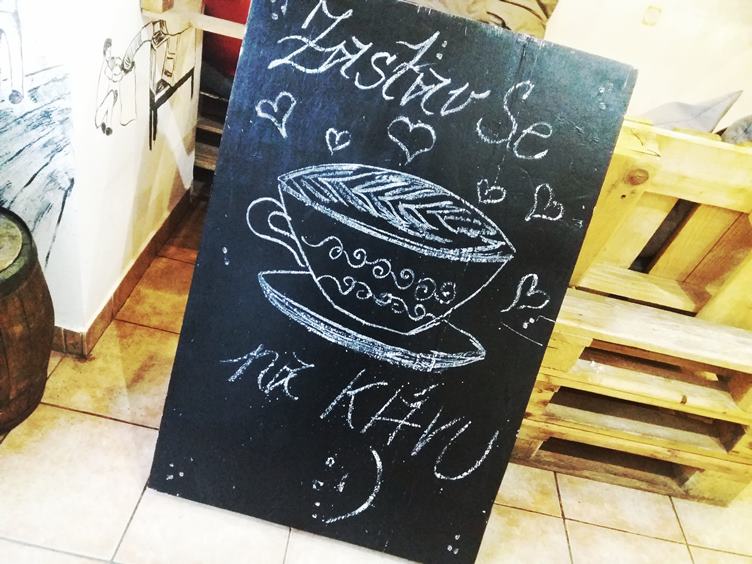 Zastav Se
na KÁVU
:)